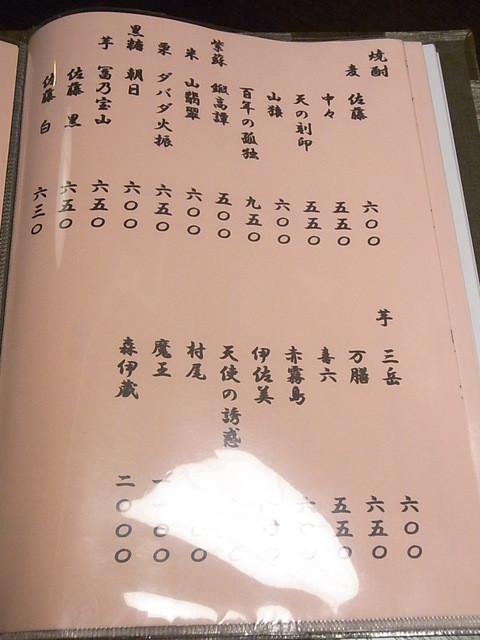 焼酎
麦 佐藤 六〇〇
中々 五五〇
天の刻印 五五〇
山猿 六〇〇
百年の孤独 九五〇
紫蘇 鍛高譚 五〇〇
米 山翡翠 六〇〇
栗 ダバダ火振 六五〇
黒糖 朝日 六〇〇
芋 冨乃宝山 六五〇
佐藤 黒 六五〇
佐藤 白 六三〇
芋 三岳 六〇〇
万膳 六五〇
喜六 五五〇
赤霧島
伊佐美
天使の誘惑
村尾
魔王
森伊蔵 二〇〇〇